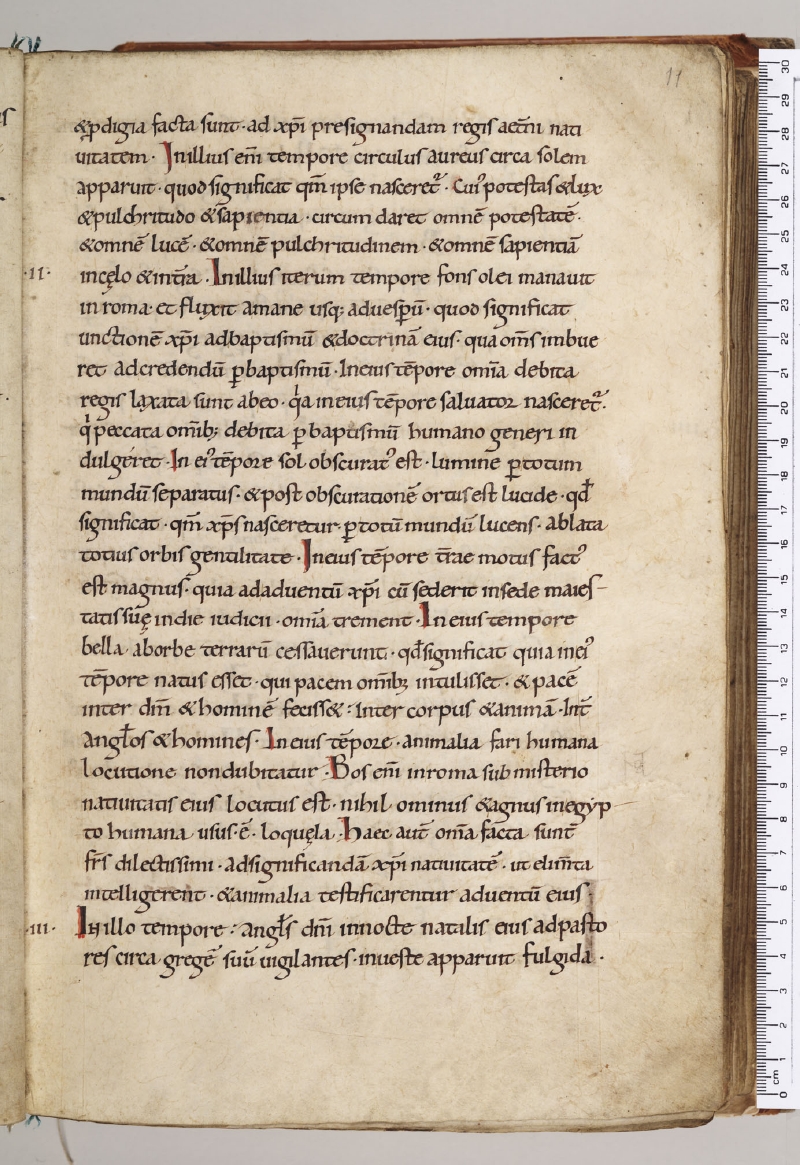 11
&ꝓdigia facta sunt · ad xp̄i presignandam regis aet̄ni nati
uitatem · Inillius em̄ tempore circulus aureus circa solem
apparuit · quod significat qm̄ ipse nasceret᷑ · Cui᾽ potestas &lux
&pulchritudo &sapientia · circum daret omnē potestatē ·
&omnē lucē · &omnē pulchritudinem · &omnē sapientiā
·II· incęlo &int̄ra · Inillius iterum tempore fons olei manauit
in roma · et fluxit amane usq; aduesꝑū · quod significat
unctionē xp̄i adbaptismū &doctrinā eius · qua om̄s imbue
ret adcredendū ꝑ baptismū · Ineius tēpore om̄ia debita
regis laxata sunt abeo · qͥa ineius tēpore saluator nasceret᷑ ·
qͥ peccata omib; debita ꝑ baptismū humano generi in
dulgeret · In ei᾽ tēpore sol obscurat᾽ est · lumine ꝑtotum
mundū separatus · &post obscurationē ortus est lucide · qđ
significat · qm̄ xp̄s nasceretur · ꝑtotū mundū lucens · ablata
totius orbis gentilitate · Ineius tēpore t̄rae motus fact᾽
est magnus · quia adaduentū xp̄i cū sederit insede maies-
tatis suę indie iudicii · omīa trement · In eius tempore
bella aborbe terrarū cessauerunt · qđ significat quia inei᾽
tēpore natus esset · qui pacem omib; intulisset · & pacē
inter dm̄ & hominē feciss& · Inter corpus &animā · Int̄
angłos & homines · In eius tēpore · animalia fari humana
locutione nondubitatur · Bos em̄ inroma sub misterio
natiuitatis eius locutus est · nihil ominus &agnus inegyp
to humana usus · ē · loquęla · Haec aut̄ om̄a facta sunt̄
fr̄s dilectissimi · adsignificandā xp̄i natiuitatē · ut elim̄ta
intelligerent · &animalia testificarentur aduentū eius ·
·III· In illo tempore · angłs dm̄ innocte natalis eius adpasto
res circa gregē suū uigilantes · inueste apparuit fulgida ·
cm 0 1 2 3 4 5 6 7 8 9 10 11 12 13 14 15 16 17 18 19 20 21 22 23 24 25 26 27 28 29 30